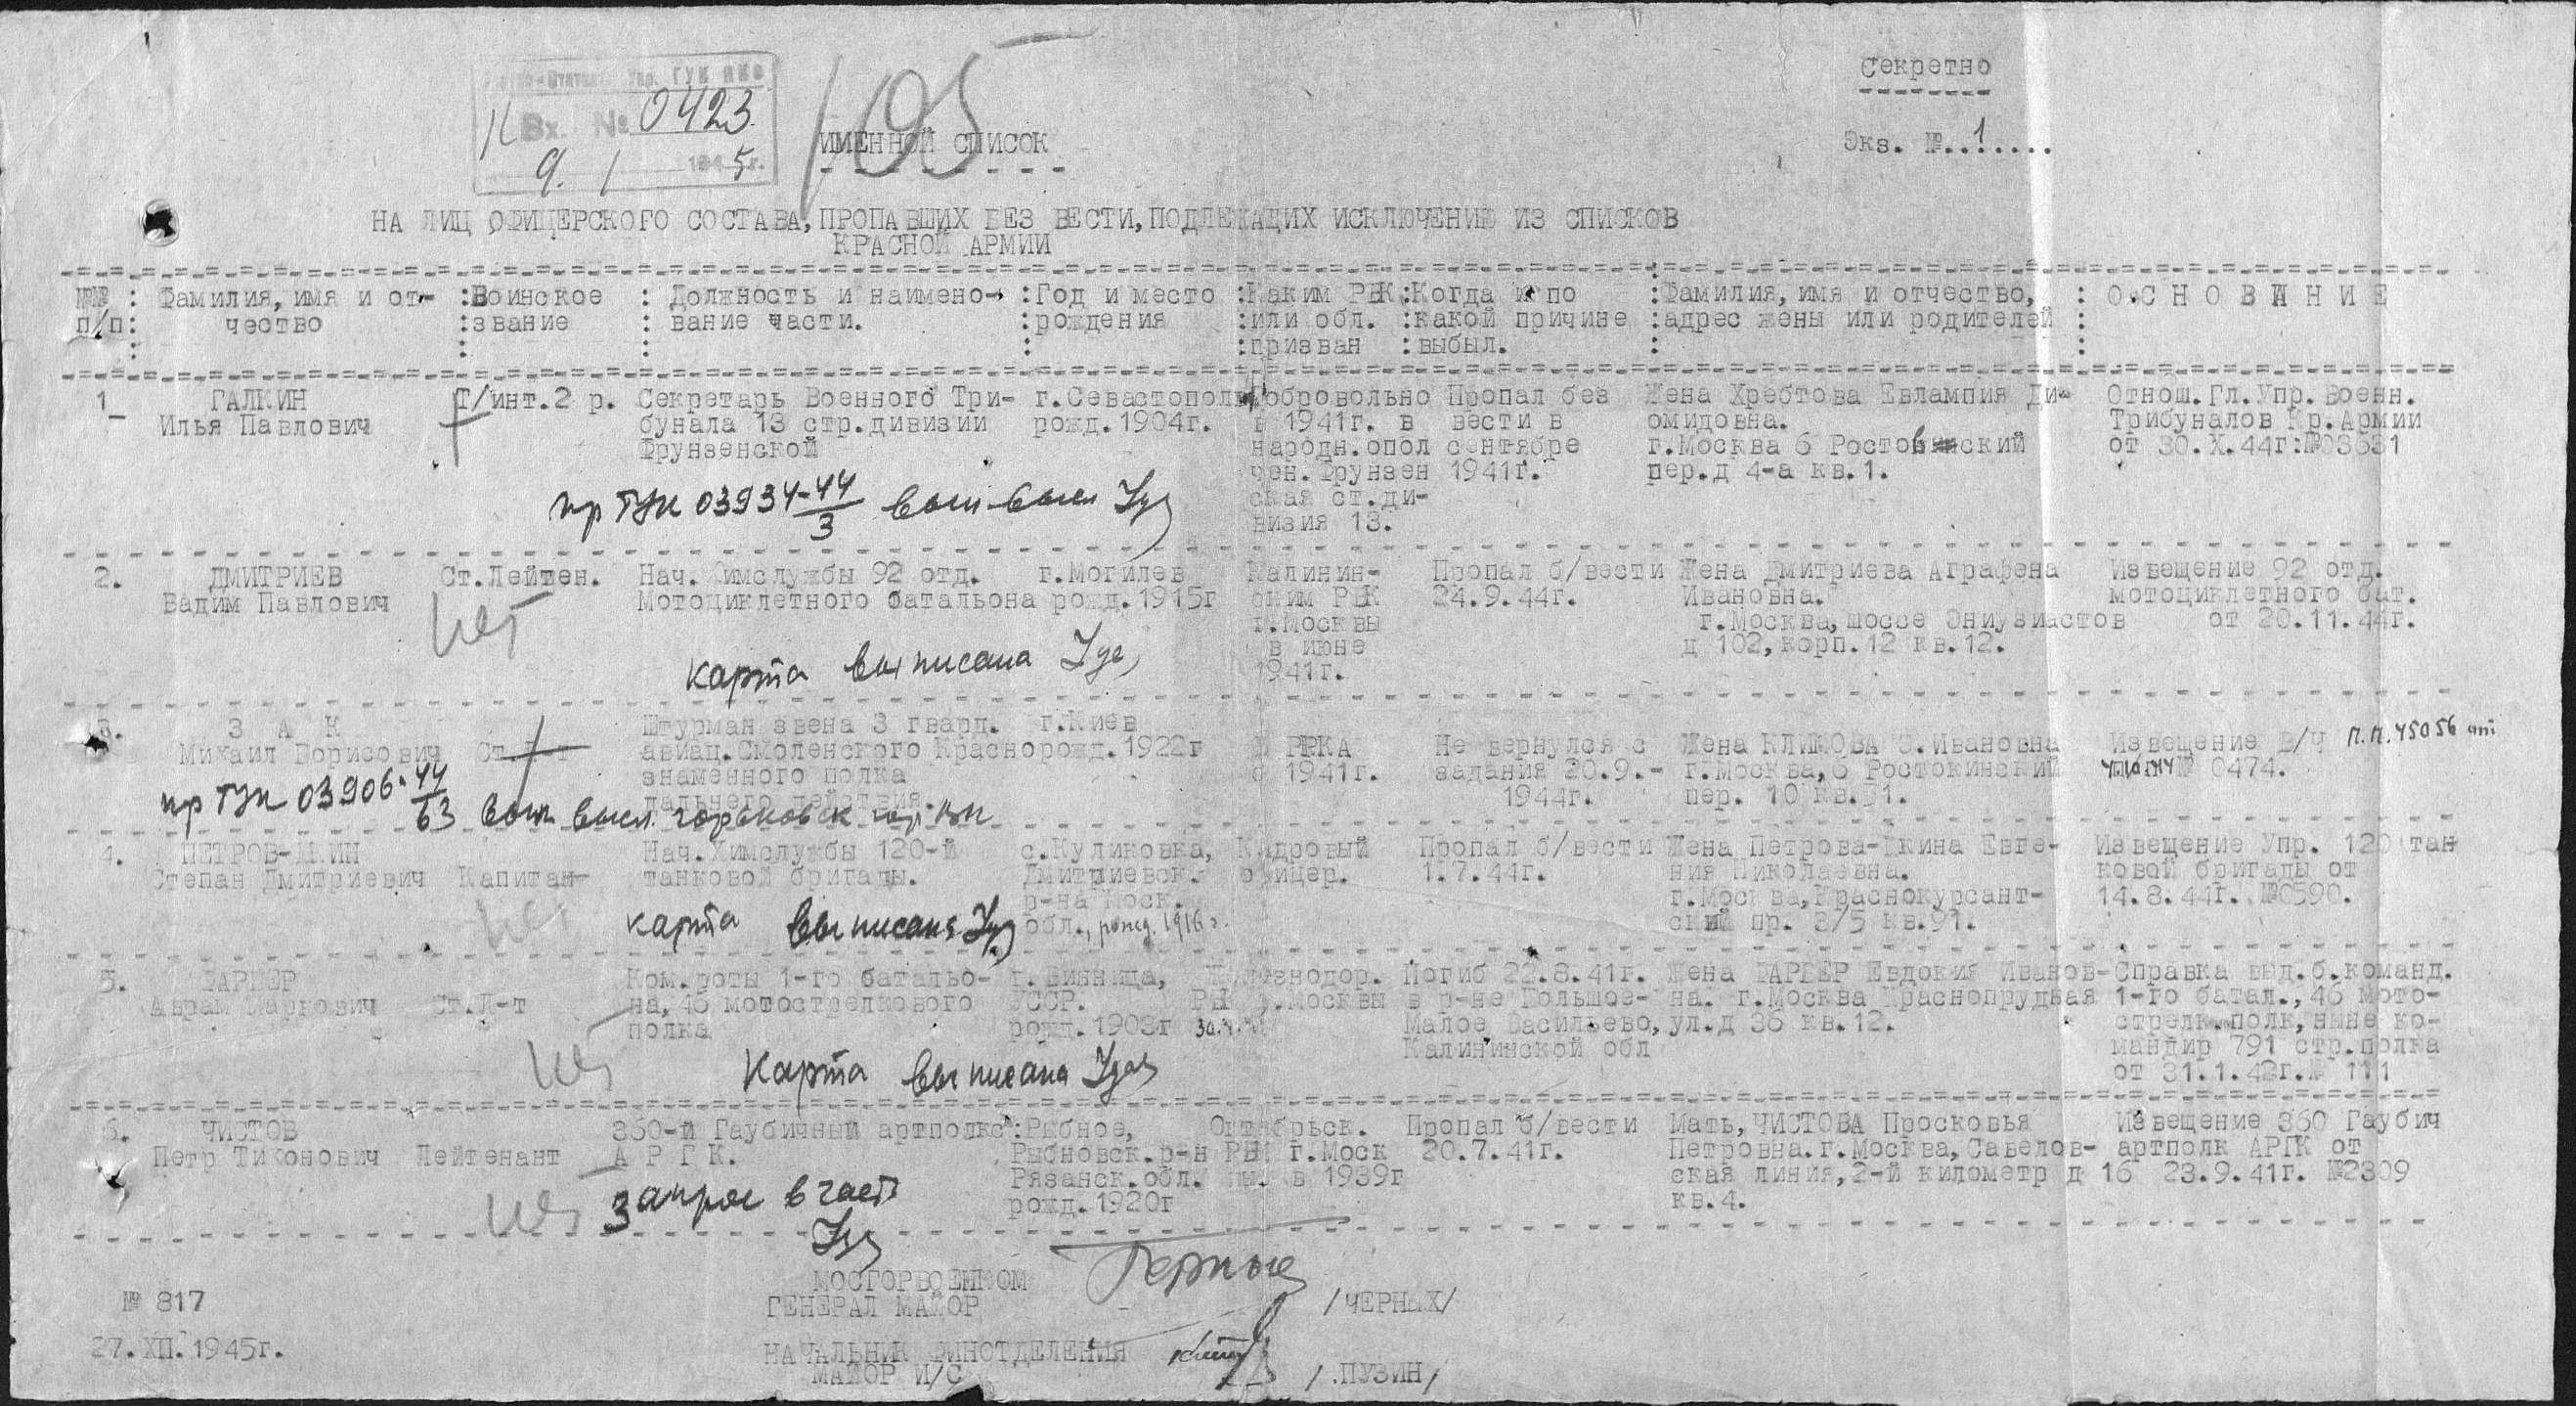 Секретно
Вх. № 0423
9. 1 1945г.
105
ИМЕННОЙ СПИСОК
Экз. №..1....
НА ЛИЦ ОФИЦЕРСКОГО СОСТАВА, ПРОПАВШИХ БЕЗ ВЕСТИ, ПОДЛЕЖАЩИХ ИСКЛЮЧЕНИЮ ИЗ СПИСКОВ
КРАСНОЙ АРМИИ
№№ : Фамилия, имя и от- :Воинское : Должность и наимено- :Год и место :Каким РВК :Когда и по :Фамилия, имя и отчество, : О С Н О В А Н И Е
п/п: чество :звание : вание части. :рождения :или обл. :какой причине :адрес жены или родителей :
:призван :выбыл. :
1 ГАЛКИН Т/инт.2 р. Секретарь Военного Три- г.Севастополь Добровольно Пропал без Жена Хребтова Евлампия Ди- Отнош.Гл.Упр.Военн.
Илья Павлович бунала 13 стр.дивизии рожд.1904г. в 1941г. в вести в омидовна. Трибуналов Кр.Армии
Фрунзенской народн.опол сентябре г.Москва 6 Ростовинский от 30.X.44г.№03631
чен.Фрунзен 1941г. пер.д 4-а кв.1.
пр ГУК 03934-44/3
ская ст.ди-
визия 13.
2. ДМИТРИЕВ Ст.Лейтен. Нач.Химслужбы 92 отд. г.Могилев Калинин- Пропал б/вести Жена Дмитриева Аграфена Извещение 92 отд.
Вадим Павлович Мотоциклетного батальона рожд.1915г ским РВК 24.9.44г. Ивановна. мотоциклетного бат.
нет г.Москвы г.Москва, шоссе Эниузиастов от 20.11.44г.
в июне д 102, корп.12 кв.12.
карта выписана 1941г.
3. З А К Штурман звена 3 гвард. г.Киев
Михаил Борисович Ст. авиац.Смоленского Красно рожд.1922г В РККА Не вернулся с Жена КЛИМОВА . Ивановна Извещение В/Ч П.П.45056 от
знаменного полка с 1941г. задания 20.9.- г.Москва, 6 Ростокинский № 0474.
дальнего действия. 1944г. пер. 10 кв.
пр ГУК 03906-44/63
4. ПЕТРОВ- Нач.Химслужбы 120-й с.Куликовка, Кадровый Пропал б/вести Жена Петрова- Евге- Извещение Упр. 120 тан
Степан Дмитриевич Капитан танковой бригады. Дмитриевск. офицер. 1.7.44г. ния Николаевна. ковой бригады от
р-на Моск. г.Москва, Краснокурсант- 14.8.44г. №0590.
нет карта выписана обл., рожд. 1916 г. ский пр. 3/5 кв.91.
5. Ком.роты 1-го батальо- г.Винница, Железнодор. Погиб 22.8.41г. Жена Евдокия Иванов- Справка выд.б.команд.
Ст.Л-т на, 46 мотострелкового УССР. РВК г.Москвы в р-не Большое- на. г.Москва Краснопрудная 1-го батал., 46 мото-
полка рожд.1908г Малое Васильево, ул.д 36 кв.12. стрелк.полк, ныне ко-
Калининской обл мандир 791 стр.полка
нет Карта выписана от 31.1.42г.№ 111
6. ЧИСТОВ 360-й Гаубичный артполк :Рыбное, Октябрьск. Пропал б/вести Мать, ЧИСТОВА Просковья Извещение 360 Гаубич
Петр Тихонович Лейтенант А Р Г К. Рыбновск.р-н РВК г.Моск 20.7.41г. Петровна.г.Москва, Савелов- артполк АРГК от
Рязанск.обл. в 1939г ская линия, 2-й километр д 16 23.9.41г. №2309
нет запрос в часть рожд.1920г кв.4.
МОСГОРВОЕНКОМ
№ 817 ГЕНЕРАЛ МАЙОР /ЧЕРНЫХ/
27.XII.1945г. НАЧАЛЬНИК ФИНОТДЕЛЕНИЯ
МАЙОР И/С /.ПУЗИН/